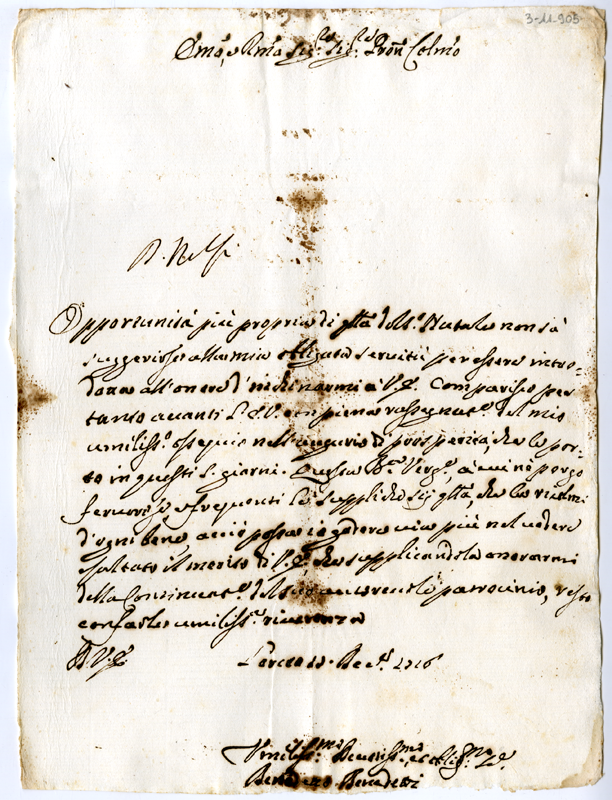 3-11-905
Emo, e Rmo Sig.re Sig.re Pron Colmo
B. Nelli
Opportunità più propria di q.ta del S. Natale non sà
suggerirsi alla mia obligata servitù per essere intro-
dotta all'onore d'inchinarmi à V.E. Comparisco per
tanto avanti l'E.V. con piena rassegnat.e del mio
umiliss.o ossequio nell'augurio di prosperità, che le por-
to in questi S. giorni. Questa B.ma Verg.e, à cui ne porgo
fervorose, e frequenti le suppliche sia q.ta, che la ricolmi
d'ogni bene acciò possa io godere via più nel vedere
esaltato il merito di V.E. che supplicandola onorarmi
della Continuat.e del suo autorevole patrocinio, resto
con farle umiliss.a riverenza
D.V.E.
Loreto Xbre 1716
Umiliss.mo Devotiss.mo et oblig.mo
Benedetto Benedetti